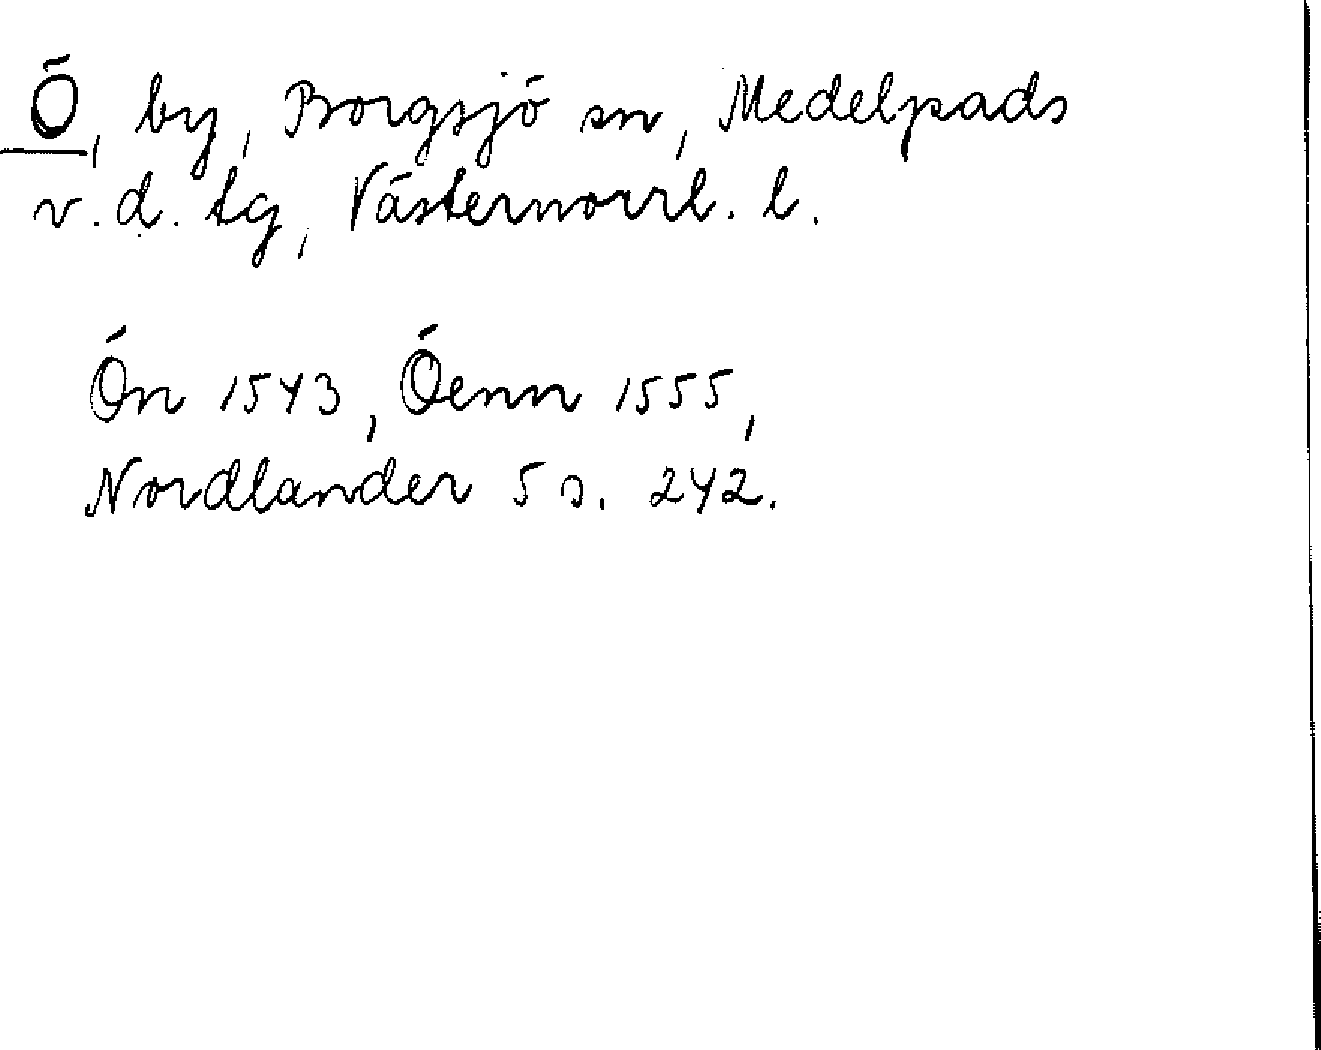 Ö, by, Borgsjö sn, Medelpads
v.d. tg, Västernorrl. l.
Ön 1543, Öenn 1555,
Nordlander 5 s. 242.